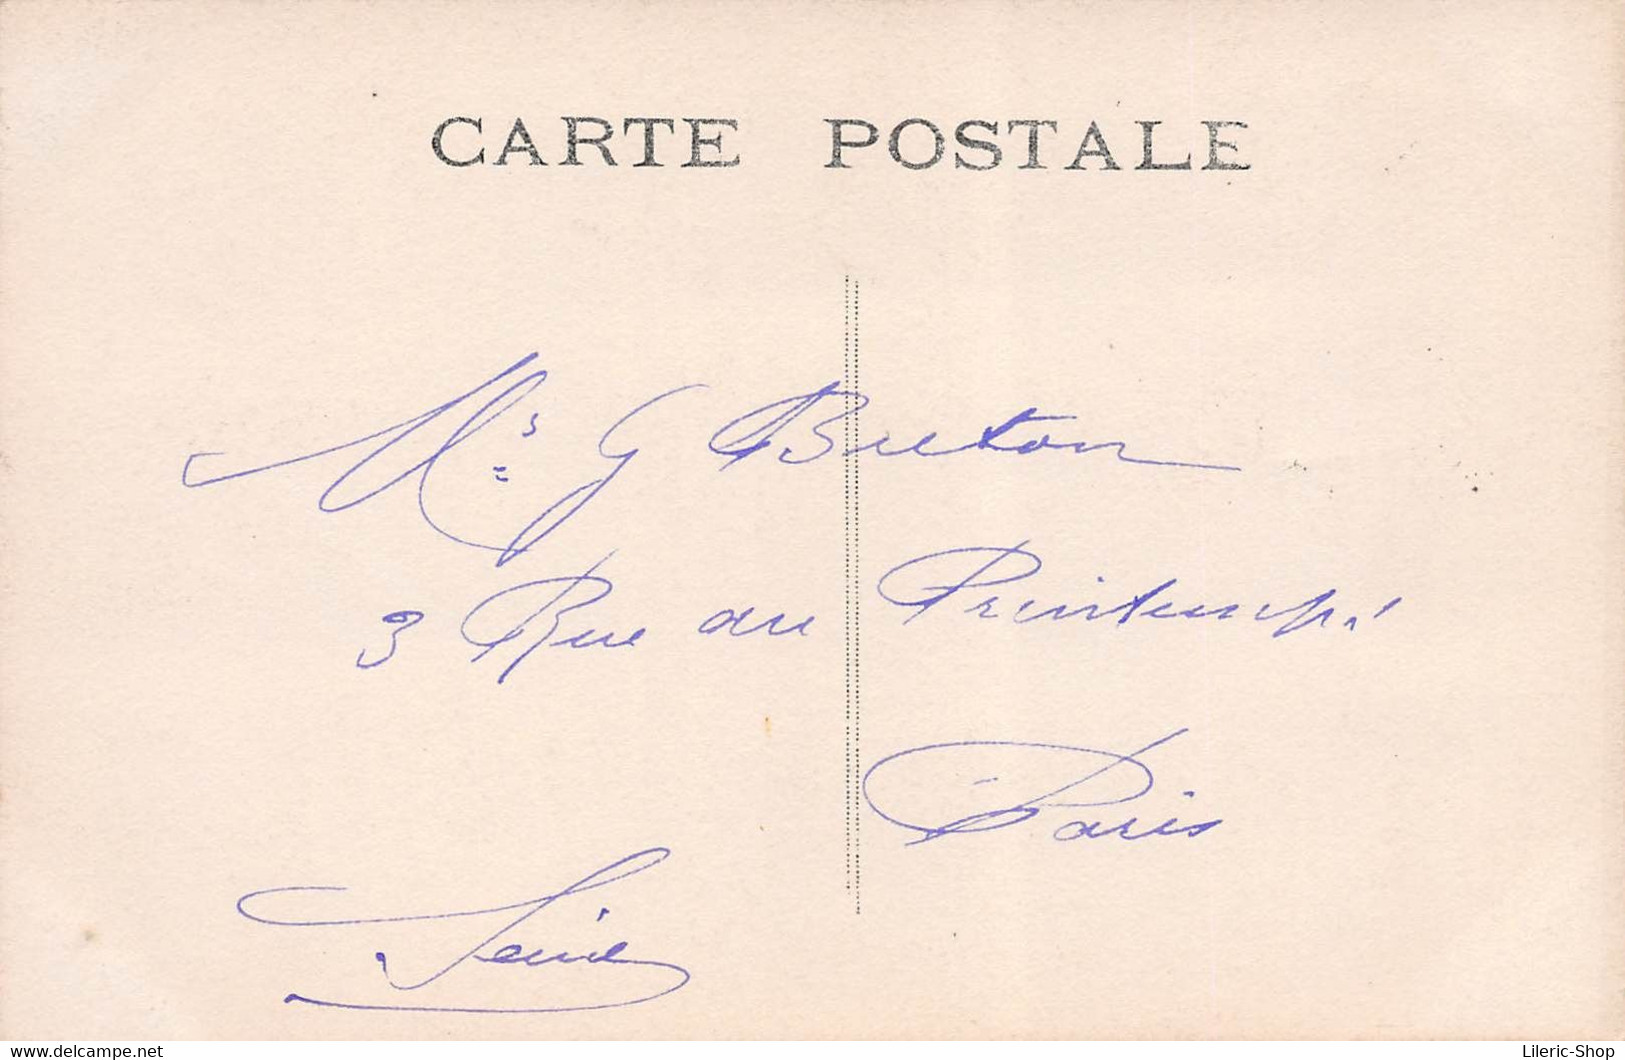 CARTE POSTALE
Mr G Breton
3 Rue du Printemps
Paris
Seine
www.delcampe.net
Lileric-Shop